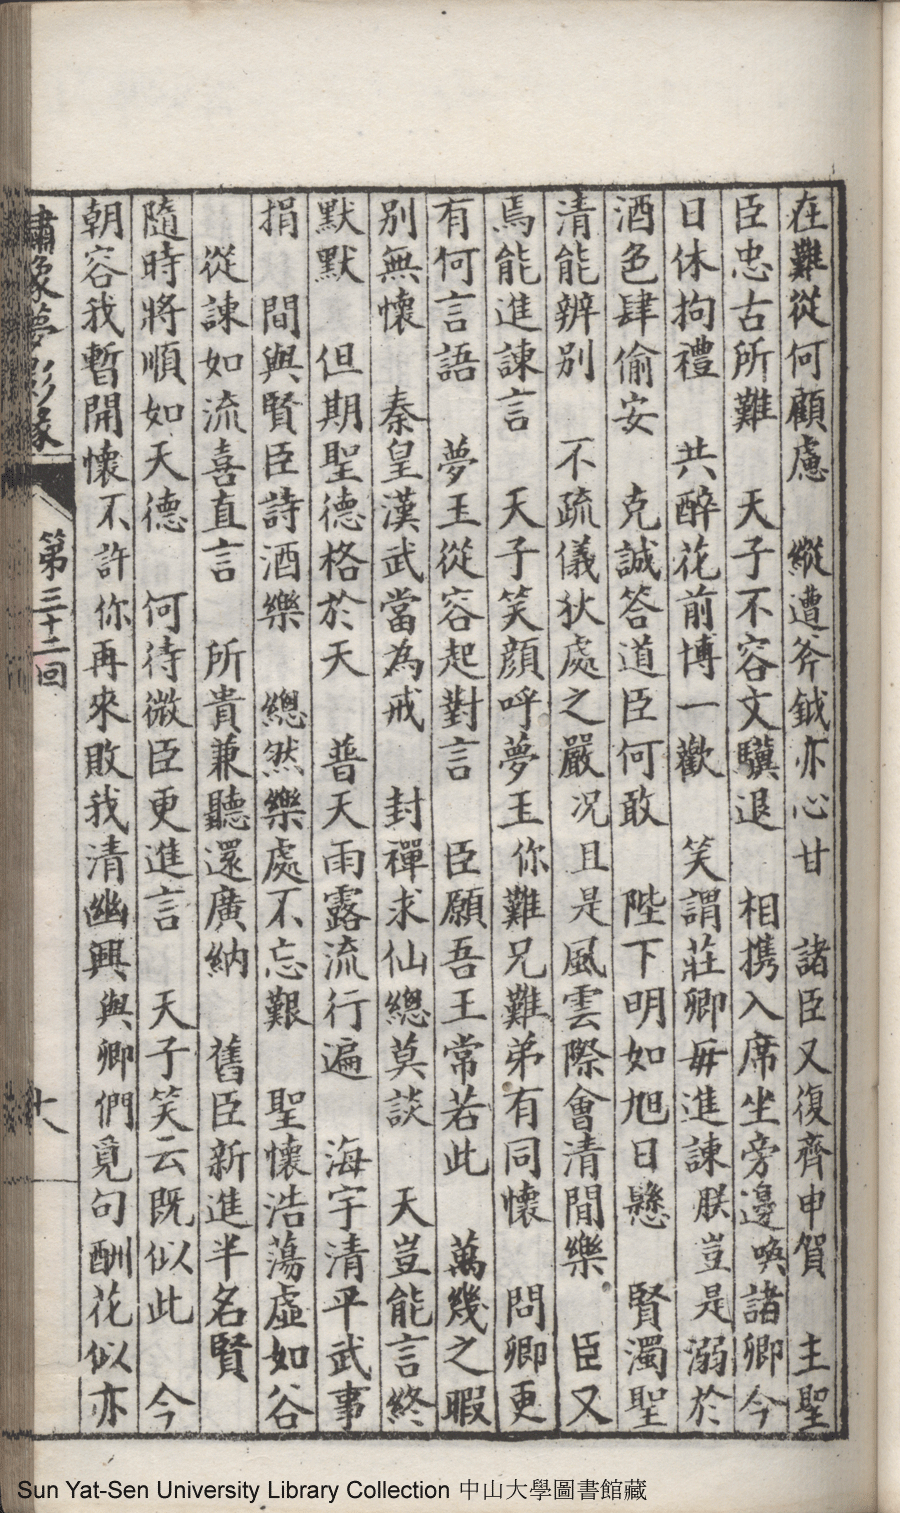 在難從何顧慮　縱遭斧鉞亦心甘　諸臣又復齊申賀　主聖
臣忠古所難　天子不容文驥退　相携入席坐旁邊喚諸卿今
日休拘禮　共醉花前博一歡　笑謂莊卿毋進諫朕豈是溺於
酒色肆偷安　克誠答道臣何敢　陛下明如旭日懸　賢濁聖
清能辨別　不疏儀狄處之嚴况且是風雲際會清閒樂　臣又
焉能進諫言　天子笑顏呼夢玉你難兄難弟有同懷　問卿更
有何言語　夢玉從容起對言　臣願吾王常若此　萬幾之暇
別無懷　秦皇漢武當為戒　封禪求仙總莫談　天豈能言終
默默　但期聖德格於天　普天雨露流行遍　海宇清平武事
捐　間與賢臣詩酒樂　總然樂處不忘艱　聖懷浩蕩虛如谷
從諫如流喜直言　所貴兼聽還廣納　舊臣新進半名賢
隨時將順如天德　何待微臣更進言　天子笑云既似此　今
朝容我暫開懷不許你再來敗我清幽興與卿們覓句酬花似亦
繡像夢影緣　第三十二回　十八
Sun Yat-Sen University Library Collection 中山大學圖書館藏